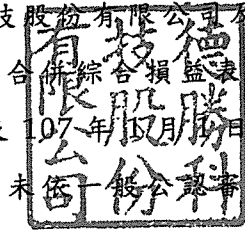 技股份有限公司
合併綜合損益表
107 年 1 月 1 日
未依一般公認審
德勝科
技股份
有限公司